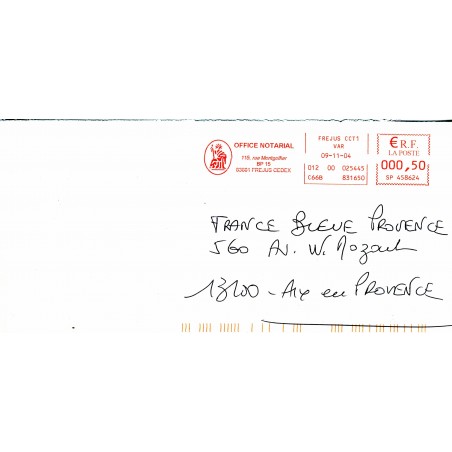 OFFICE NOTARIAL
119, rue Montgolfier
BP 15
83601 FREJUS CEDEX
FREJUS CCT1
VAR
09-11-04
012 00 025445
C66B 831650
€ R.F.
LA POSTE
000,50
SP 458624
FRANCE BLEUE PROVENCE
560 AV. W. Mozart
13100 - AIX en PROVENCE